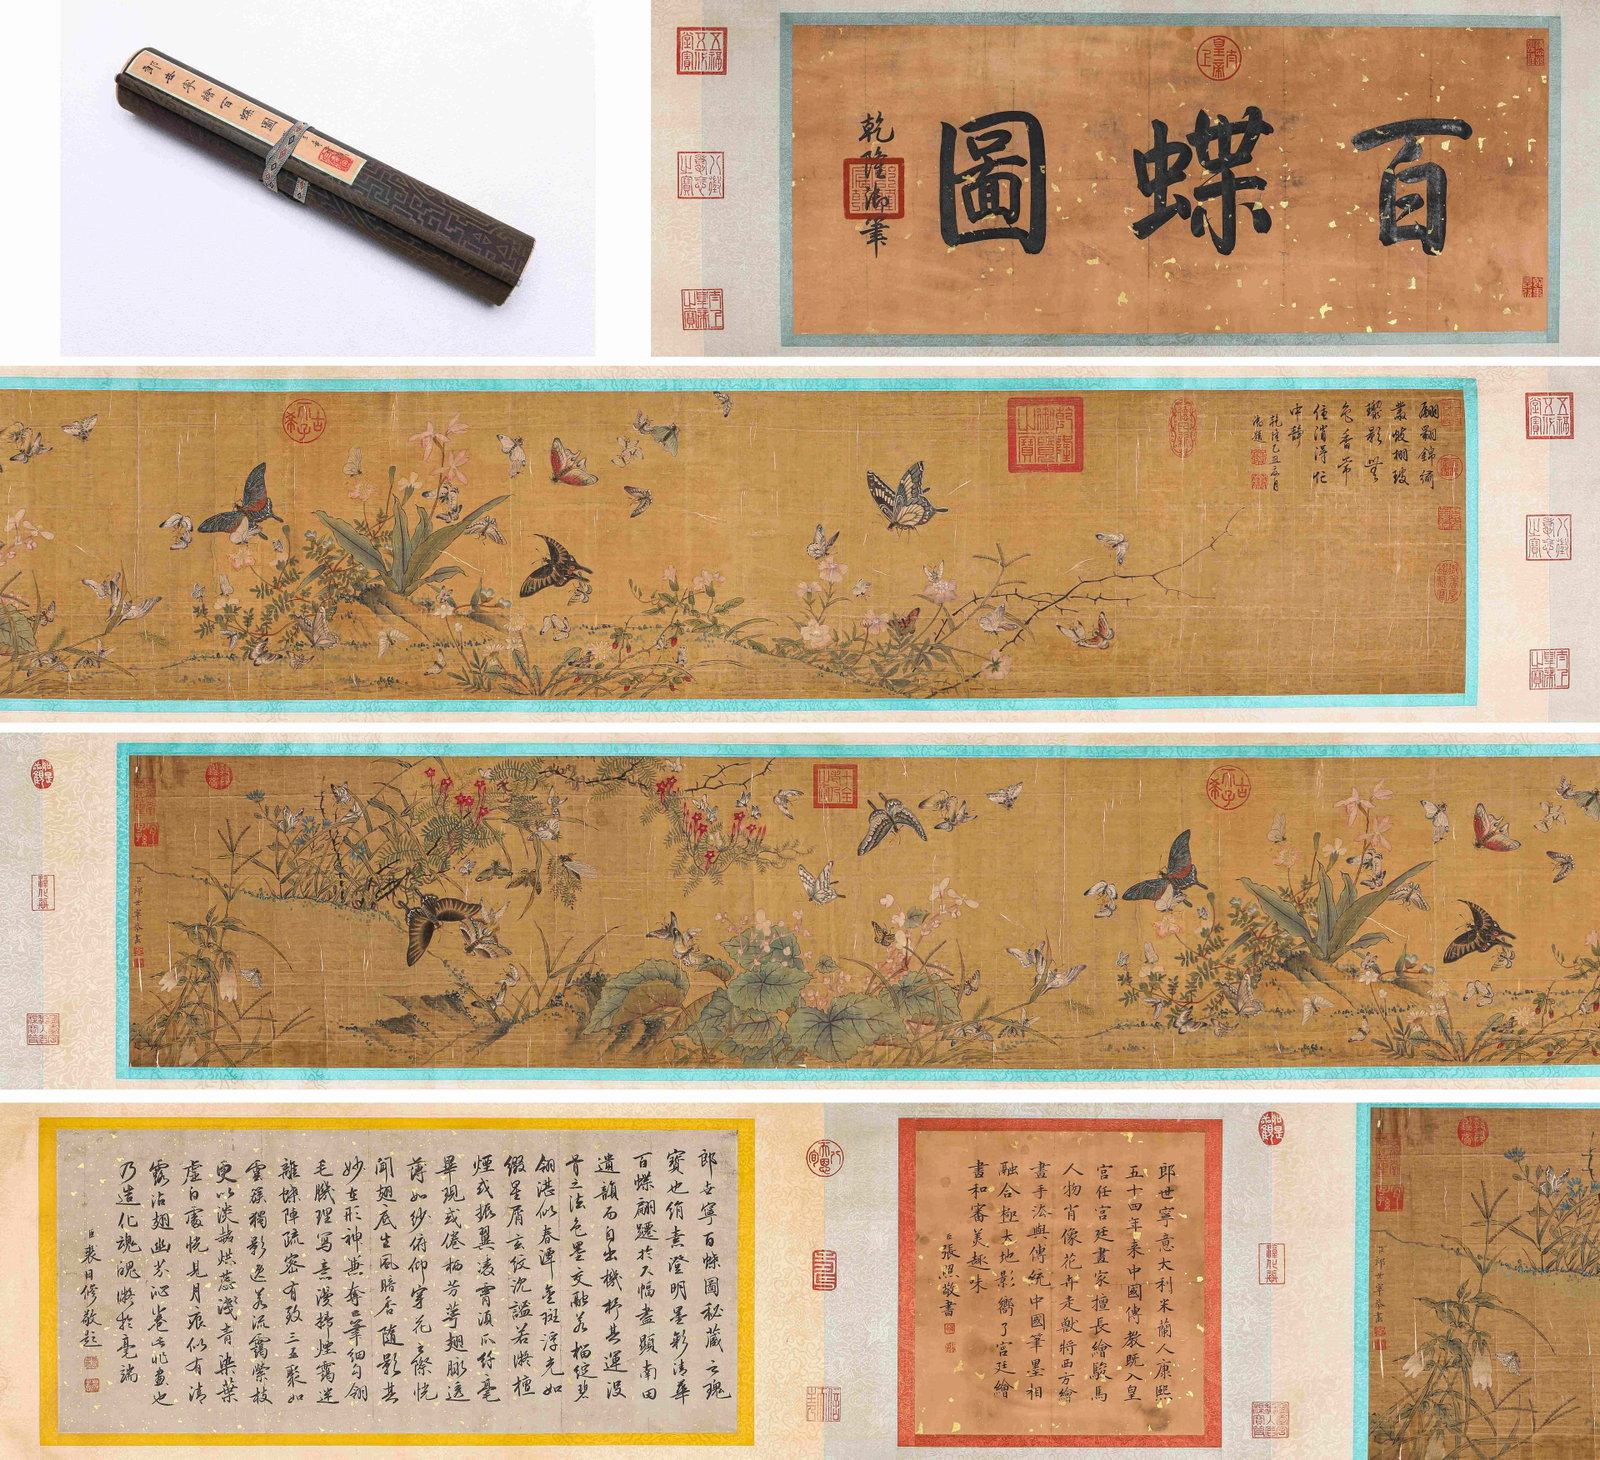 郎世寧繪百蝶圖
百蝶圖
乾隆御筆
太上皇帝
翩翩錦
色香常
住消得忙
中靜
御題
古稀天子
臣郎世寧恭畫
郎世寧意大利米蘭人康熙
五十四年來中國傳教旣入皇
宮任宮廷畫家擅長繪駿馬
人物肖像花卉走獸將西方繪
畫手法與傳統中國筆墨相
融合極大地影嚮了宮廷繪
畫和審美趣味
臣張照敬書
郎世寧百蝶圖秘藏之瑰
寶也絹素澄明墨彩清華
百蝶翩躚於尺幅盡顯南田
遺韻而自出機杼其運没
骨之法色墨交融若榴綻碧
翎湛似春潭金斑浮光如
綴星屑玄紋沉謐若凝檀
煙或振翼凌霄須爪纖毫
畢現或倦栖芳萼翅脈透
薄如紗俯仰穿花之際恍
聞翅底生風暗香隨影其
妙在形神兼奪工筆細勾翎
毛腠理寫意漫掃煙靄迷
離蝶陣疏密有致三五聚如
雲篆獨影逸若流靄縈枝
更以淡赭烘蕊淺青染葉
虛白處恍見月痕似有清
露沾翅幽芬沁卷此非畫也
乃造化魂魄凝於毫端
臣裘曰修敬題
臣郎世寧恭畫